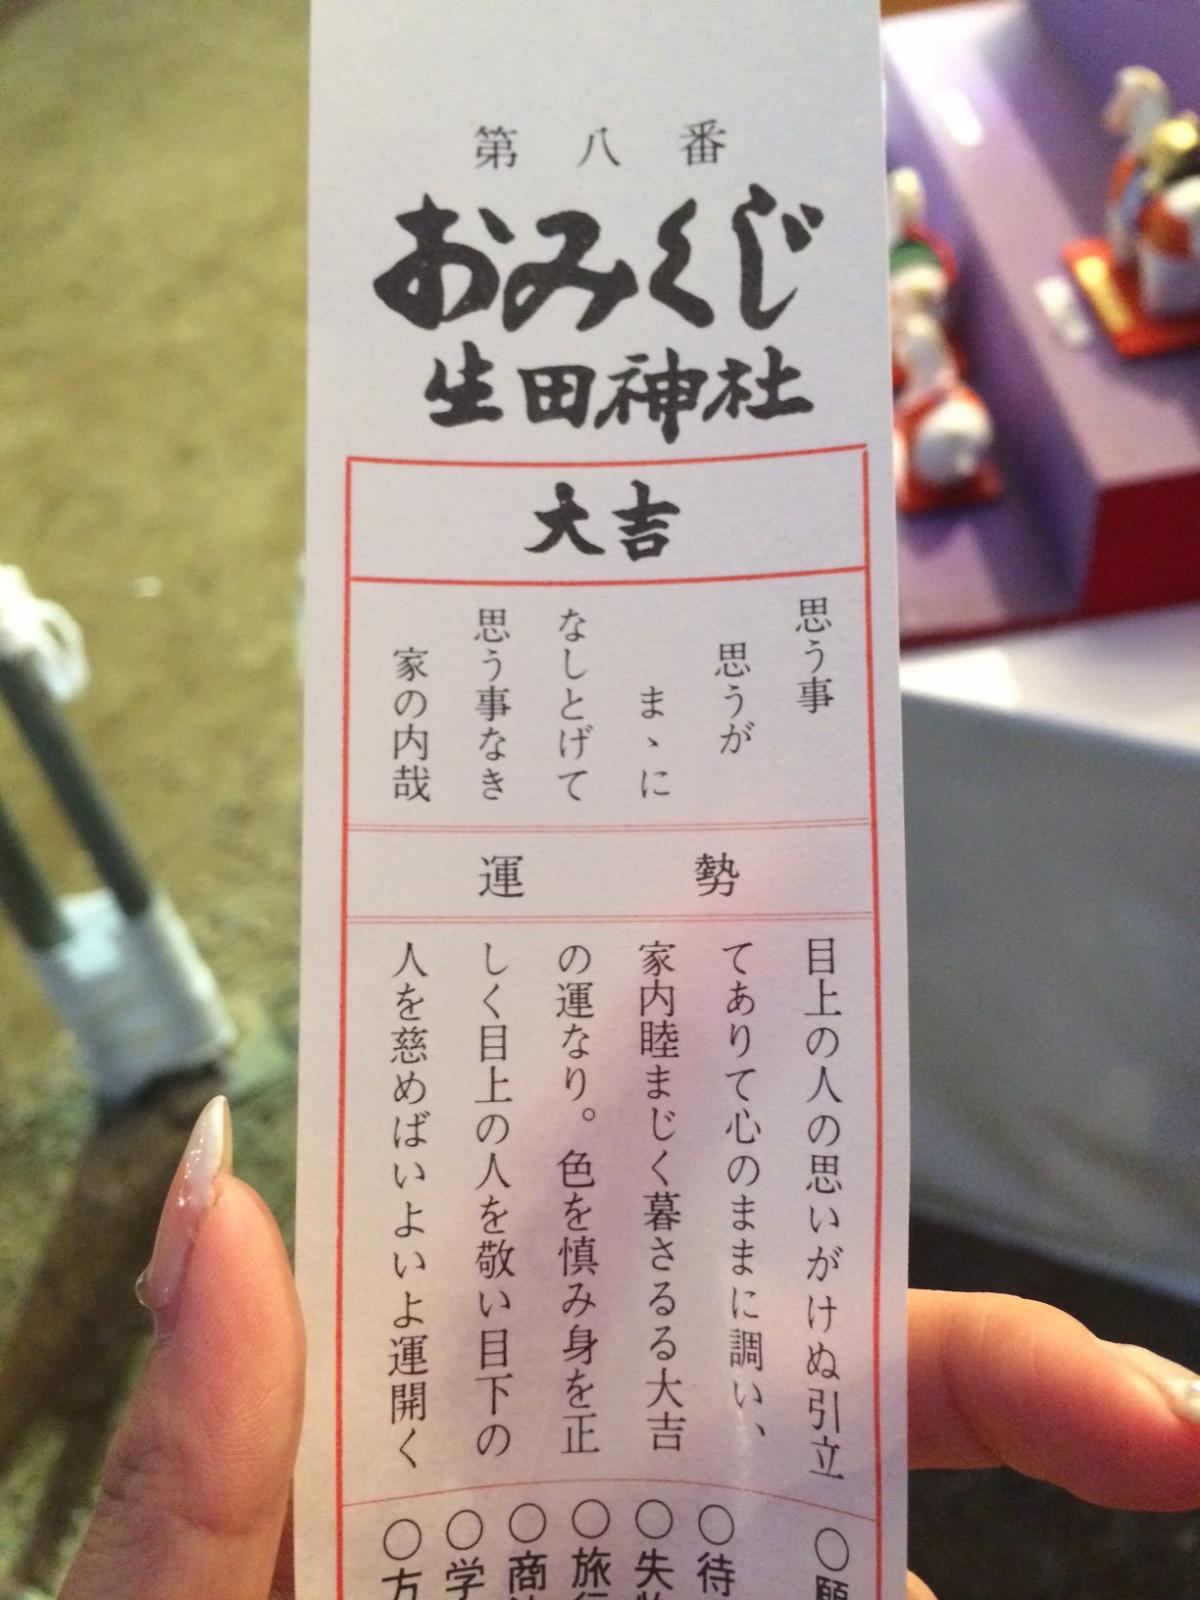 第八番
おみくじ
生田神社
大吉
思う事
思うが
まゝに
なしとげて
思う事なき
家の内哉
運勢
目上の人の思いがけぬ引立
てありて心のままに調い、
家内睦まじく暮さるる大吉
の運なり。色を慎み身を正
しく目上の人を敬い目下の
人を慈めばいよいよ運開く
○願
○待
○失物
○旅行
○商
○学
○方